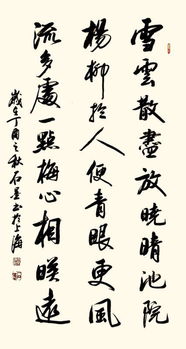 雪雲散盡放曉晴池院
楊柳於人便青眼更風
流多處一點梅心相暎遠
歲在丁酉之秋石墨書於上海